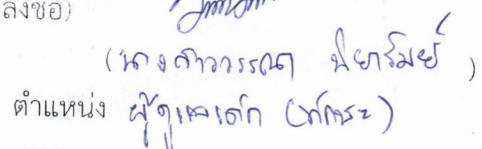 ลงชื่อ)
(นางสาววรรณา ปิยารัมย์)
ตำแหน่ง ผู้ดูแลเด็ก (ทักษะ)